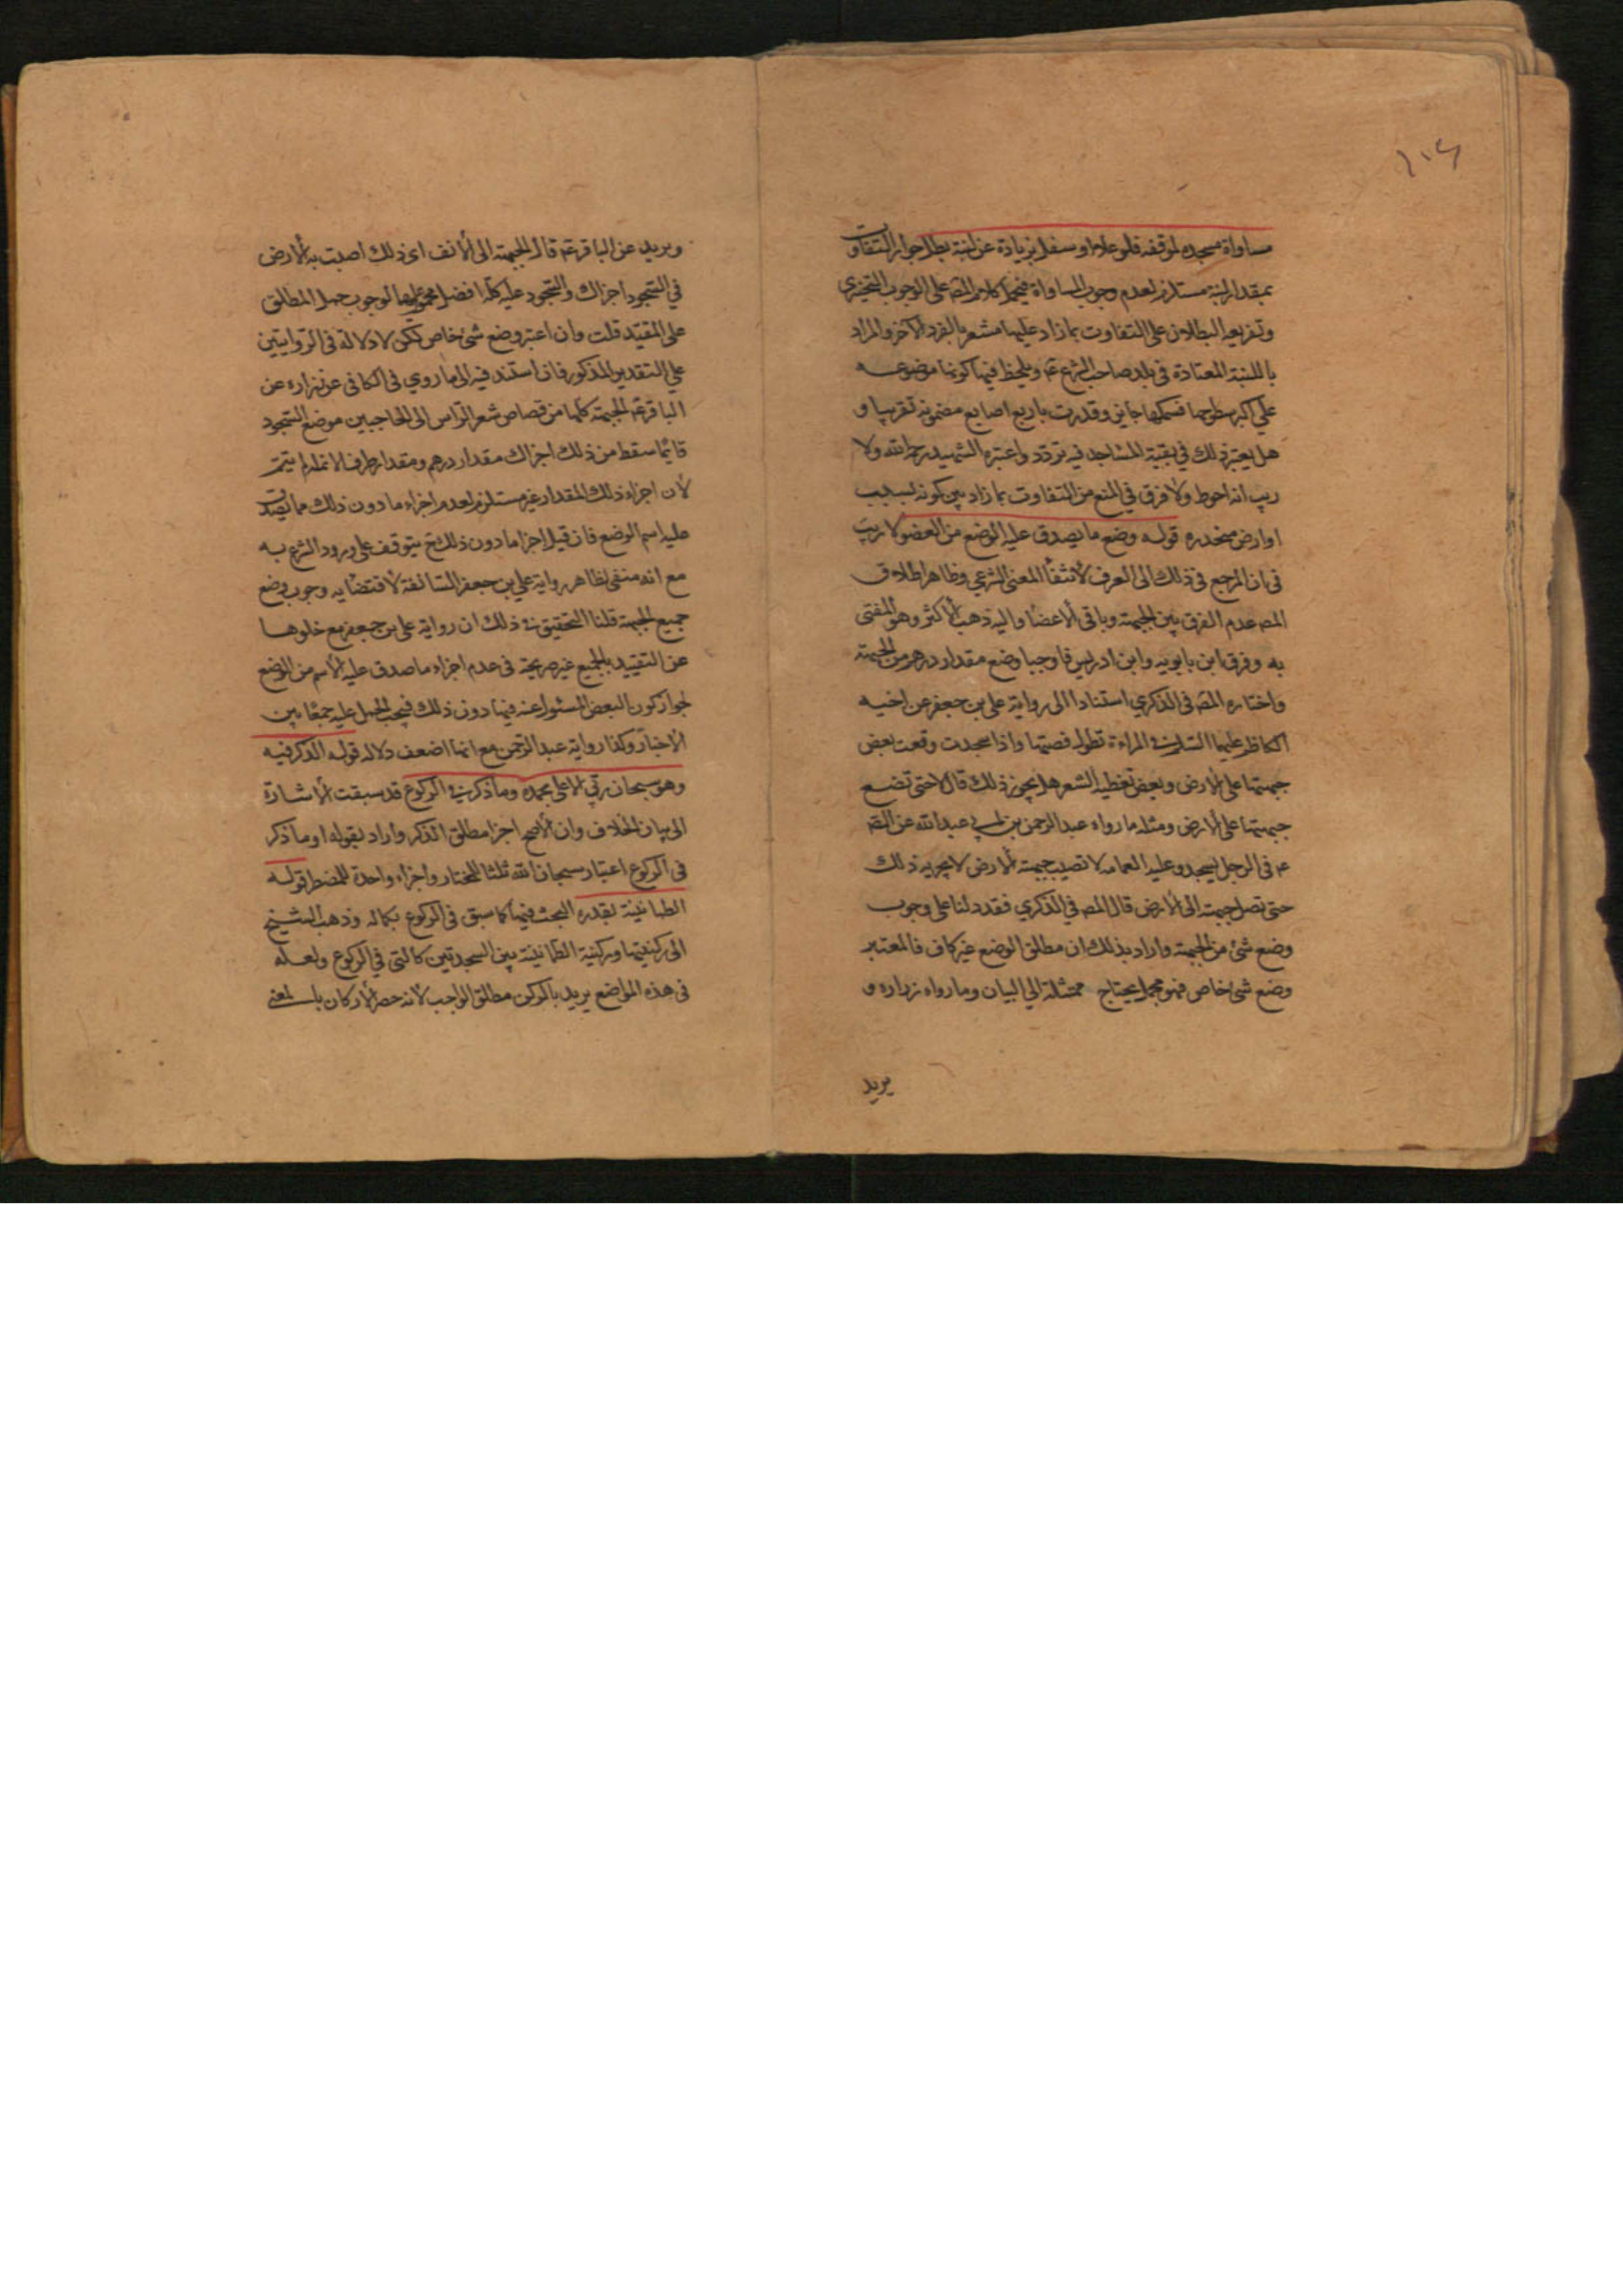 ١٠٤
مساواة مسجده لموقفه فلو علا او سفل بزيادة عن لبنة بطل جواز التفاوت
بمقدار لبنة مستلزم لعدم وجوب المساواة فيحمل كلام المصه على الوجوب التخييري
وتفريعه البطلان على التفاوت بما زاد عليها مشعر بالفرد الآخر والمراد
باللبنة المعتادة في بلد صاحب الشرع ع وملحظ فيها كونها موضوعه
على اكبر سطوحها فسمكها جانبي وقدرت باربع اصابع مضمونه تقريبا و
هل يعتبر ذلك في بقية المساجد فيه تردد واعتبره الشهيد رحمه الله ولا
ريب انه احوط ولا فرق في المنع من التفاوت بما زاد بين كونه لسبب
او ارض منحدره قوله وضع ما يصدق عليه الوضع من العضو لا ريب
في ان المرجع في ذلك الى العرف لانتفأ المعنى الشرعي وظاهر اطلاق
المصه عدم الفرق بين الجبهة وباقي الاعضا واليه ذهب الاكثر وهو المفتى
به وفرق ابن بابويه وابن ادريس فاوجبا وضع مقدار درهم من الجبهة
واختاره المصه في الذكري استنادا الى رواية على بن جعفر عن اخيه
الكاظم عليهما السلام في المراءة تطول قصتها واذا سجدت وقعت بعض
جبهتها على الارض وبعض تغطيه الشعر هل يجوز ذلك قال لا حتى تضع
جبهتها على الارض ومثله ما رواه عبد الرحمن بن ابي عبد الله عن الصه
ع في الرجل يسجد وعليه العمامه لا تصيب جبهته الارض لا يجزيه ذلك
حتى تصل جبهته الى الارض قال المصه في الذكري فقد دلنا على وجوب
وضع شئ من الجبهة واراد بذلك ان مطلق الوضع غير كاف فالمعتبر
وضع شئ خاص فهو مجمل يحتاج مثله الى البيان وما رواه زراره و
يريد
وبريد عن الباقر ع قال الجبهة الى الانف اى ذلك اصبت به الارض
في السجود اجزاك والسجود عليه كله افضل الوجوب حمل المطلق
على المقيد قلت وان اعتبر وضع شئ خاص لكن لا دلالة في الروايتين
على التقدير المذكور فان استند فيه الى ما روي في الكافي عن زراره عن
الباقر ع الجبهة كلها من قصاص شعر الراس الى الحاجبين موضع السجود
فايما سقط من ذلك اجزاك مقدار درهم ومقدار طرف الانملة لم يتم
لان اجزاء ذلك المقدار غير مستلزم لعدم اجزاء ما دون ذلك مما يصدق
عليه اسم الوضع فان قيل اجزا ما دون ذلك ح يتوقف على ورود الشرع به
مع انه منفى لظاهر رواية علي بن جعفر السالفة لاقتضايه وجوب وضع
جميع الجبهة قلنا التحقيق في ذلك ان رواية على بن جعفر مع خلوها
عن التقييد بالجميع غير صريحة في عدم اجزاء ما صدق عليه الاسم من الوضع
لجواز كون البعض المسئول عنه فيها دون ذلك فيجب الحمل عليه جمعا بين
الاخبار وكذا رواية عبد الرحمن مع انها اضعف دلالة قوله الذكر فيه
وهو سبحان ربي الاعلى بحمده وما ذكر في الركوع قد سبقت الاشارة
الى بيان الخلاف وان الاصح اجزا مطلق الذكر واراد بقوله او ما ذكر
في الركوع اعتبار سبحان الله ثلثا للمختار واجزاء واحدة للمضطر قوله
الطمانينة بقدره البحث فيها كما سبق في الركوع بكماله وذهب الشيخ
الى ركنيتها وركنية الطمانينة بين السجدتين كالتي في الركوع ولعله
في هذه المواضع يريد بالركن مطلق الواجب لانه حصر الاركان بالمعنى